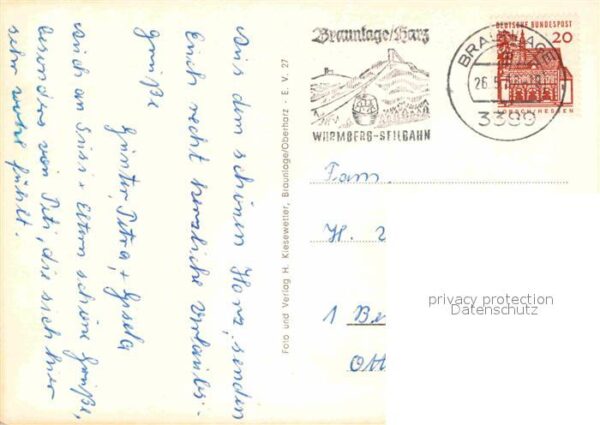 Aus dem schönen Harz, senden
Euch recht herzliche Urlaubs-
grüße
Günter, Petra, + Gisela
auch an Susi + Eltern schöne Grüße,
besonders von Peti, die sich hier
sehr wohl fühlt.
Foto und Verlag H. Kiesewetter, Braunlage/Oberharz · E. V. 27
Braunlage/Harz
WURMBERG-SEILBAHN
BRAUNLAGE
26.5.
3389
DEUTSCHE BUNDESPOST
20
LORSCH/HESSEN
Fam.
H.
1 Be
Ott
privacy protection
Datenschutz